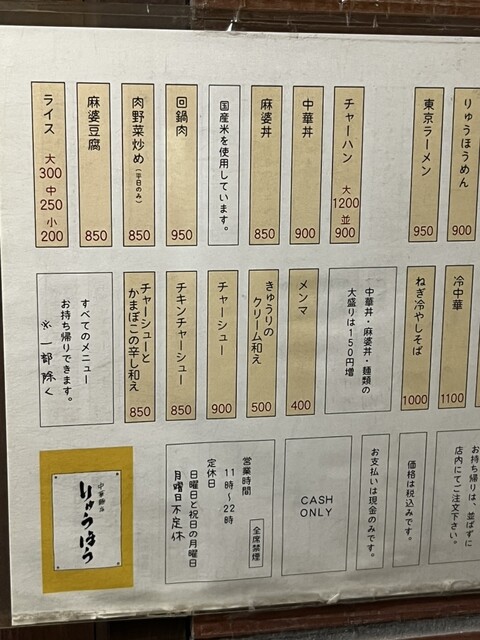 りゅうほうめん 900
東京ラーメン 950
チャーハン 大 1200 並 900
中華丼 900
麻婆丼 850
国産米を使用しています。
回鍋肉 950
肉野菜炒め(平日のみ) 850
麻婆豆腐 850
ライス 大 300 中 250 小 200
冷中華 1100
ねぎ冷やしそば 1000
中華丼・麻婆丼・麺類の
大盛りは150円増
メンマ 400
きゅうりの
クリーム和え 500
チャーシュー 900
チキンチャーシュー 850
チャーシューと
かまぼこの辛し和え 850
すべてのメニュー
お持ち帰りできます。
※一部除く
お持ち帰りは、並ばずに
店内にてご注文下さい。
価格は税込みです。
お支払いは現金のみです。
CASH
ONLY
営業時間
11時〜22時
定休日
日曜日と祝日の月曜日
月曜日不定休
全席禁煙
りゅうほう